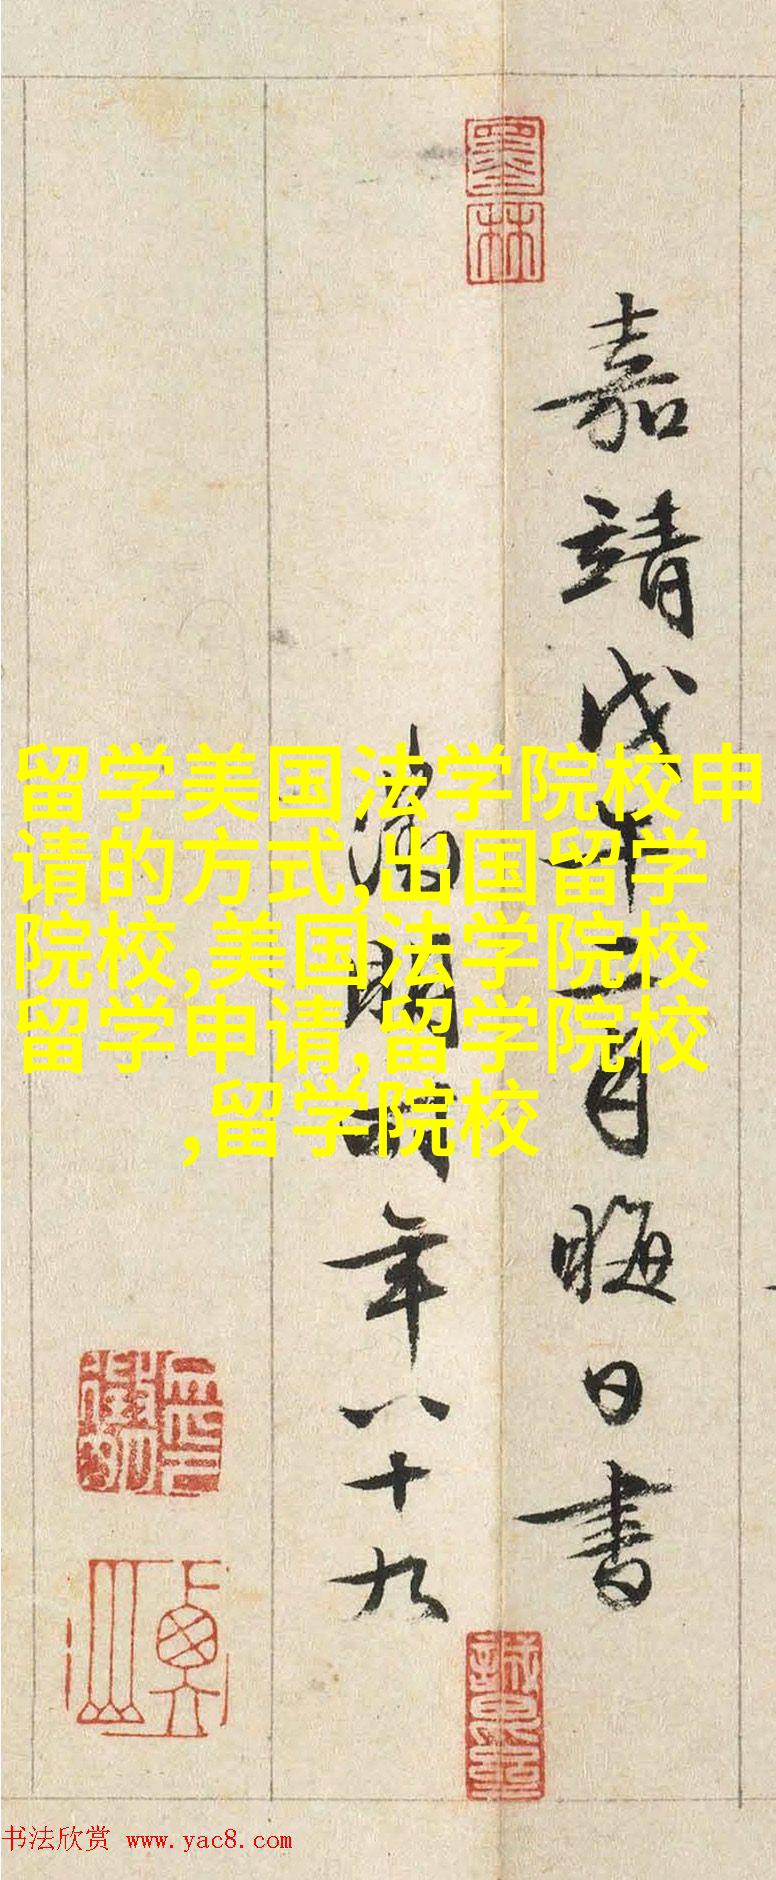 墨林
嘉靖戊午二月晦日書
徵明時年八十九
衡山
留学美国法学院校申
请的方式,出国留学
院校,美国法学院校
留学申请,留学院校
,留学院校
书法欣赏 www.yac8.com